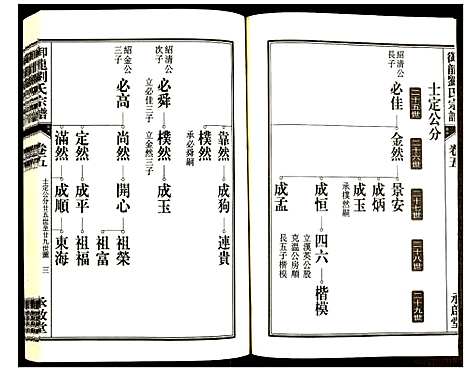 御龍劉氏宗譜
卷五
士定公分
二十五世
二十六世
二十七世
二十八世
二十九世
紹清公長子
必佳
金然
景安
成炳
成玉
承樸然嗣
成恒
四六
楷模
立漢英公股
克溫公房順
長五子楷模
成孟
永啟堂
靠然
成狗
連貴
樸然
承必舜嗣
紹清公次子
必舜
立必佳三子
樸然
成玉
立金然三子
紹金公三子
必高
尚然
開心
祖榮
祖富
定然
成平
祖福
滿然
成順
東海
御龍劉氏宗譜
卷五
士定公分廿五世至廿九世圖
三
永啟堂